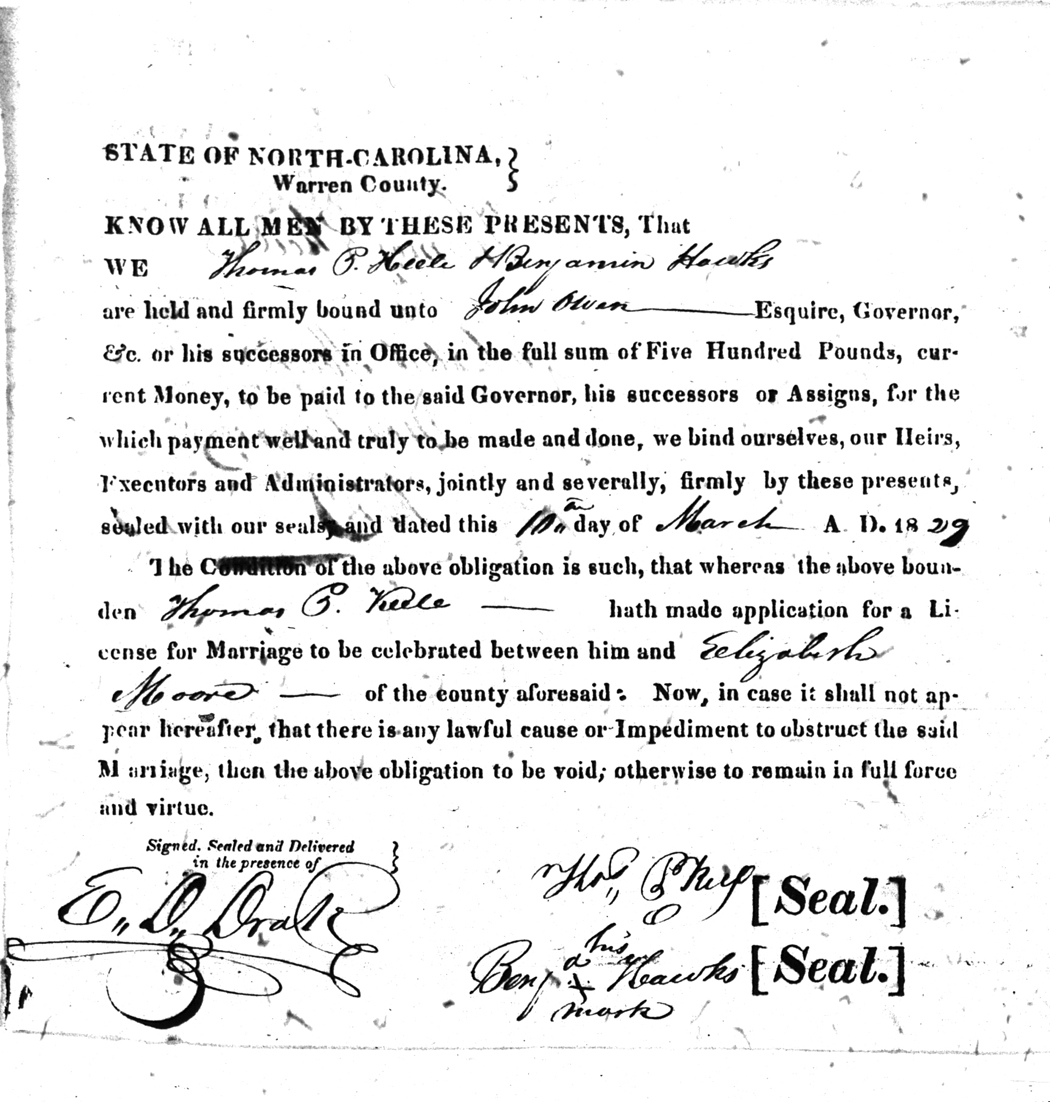 STATE OF NORTH-CAROLINA,
Warren County.
KNOW ALL MEN BY THESE PRESENTS, That
WE Thomas P. Keele & Benjamin Hawks
are held and firmly bound unto John Owen Esquire, Governor,
&c. or his successors in Office, in the full sum of Five Hundred Pounds, cur-
rent Money, to be paid to the said Governor, his successors or Assigns, for the
which payment well and truly to be made and done, we bind ourselves, our Heirs,
Executors and Administrators, jointly and severally, firmly by these presents,
sealed with our seals, and dated this 10th day of March A D. 1829
The Condition of the above obligation is such, that whereas the above boun-
den Thomas P. Keele hath made application for a Li-
cense for Marriage to be celebrated between him and Elizabeth
Moore of the county aforesaid: Now, in case it shall not ap-
pear hereafter, that there is any lawful cause or Impediment to obstruct the said
Marriage, then the above obligation to be void; otherwise to remain in full force
and virtue.
Signed, Sealed and Delivered
in the presence of
E. D. Drake
Thos P [Seal.]
his
Benj X Hawks [Seal.]
mark